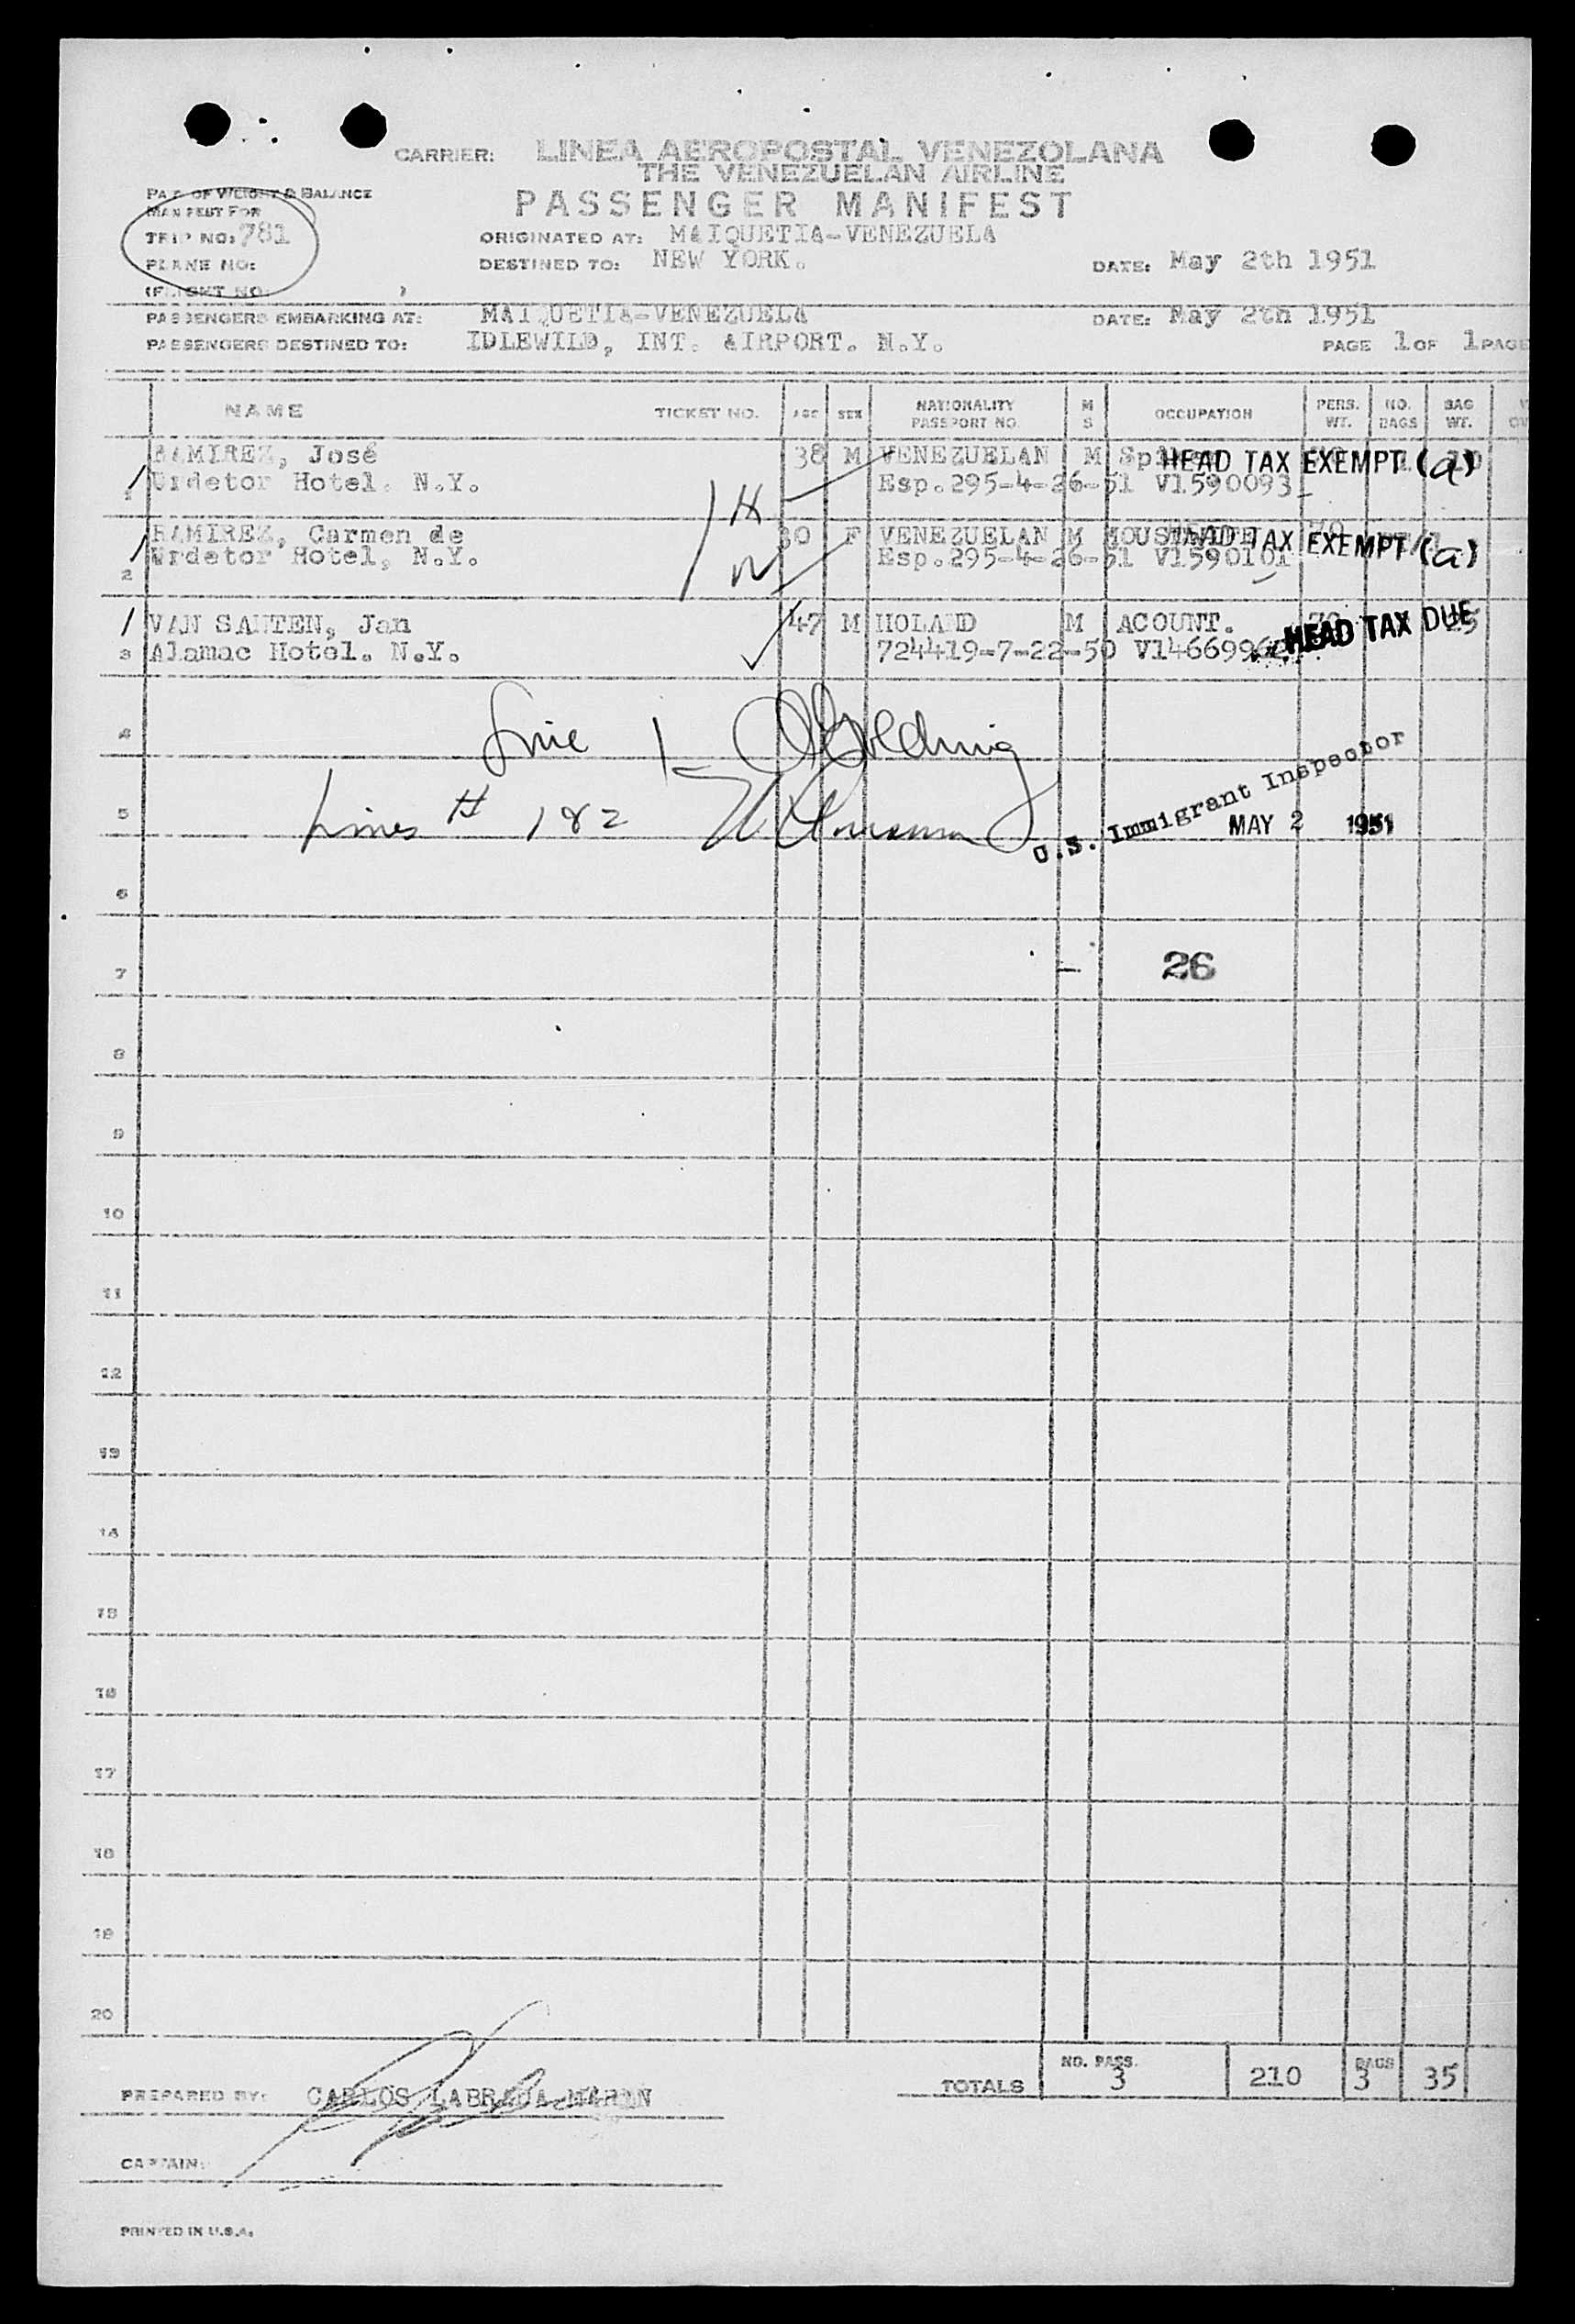 CARRIER: LINEA AEROPOSTAL VENEZOLANA
THE VENEZUELAN AIRLINE
PASSENGER MANIFEST
PART OF WEIGHT & BALANCE
MANIFEST FOR
TRIP NO: 781
PLANE NO:
(FLIGHT NO. )
ORIGINATED AT: MAIQUETIA-VENEZUELA
DESTINED TO: NEW YORK.
DATE: May 2th 1951
PASSENGERS EMBARKING AT: MAIQUETIA-VENEZUELA DATE: May 2th 1951
PASSENGERS DESTINED TO: IDLEWILD, INT. AIRPORT. N.Y. PAGE 1 OF 1 PAGE
NAME TICKET NO. AGE SEX NATIONALITY PASSPORT NO. M S OCCUPATION PERS. WT. NO. BAGS BAG WT.
RAMIREZ, José 38 M VENEZUELAN M HEAD TAX EXEMPT (a)
1 Urdetor Hotel. N.Y. Esp.295-4-26-51 V1590093
RAMIREZ, Carmen de 30 F VENEZUELAN M HOUSEWIFE 70 HEAD TAX EXEMPT (a)
2 Urdetor Hotel, N.Y. Esp.295-4-26-51 V1590101
VAN SANTEN, Jan 47 M HOLAND M ACOUNT. 70 25 HEAD TAX DUE
3 Alamac Hotel. N.Y. 724419-7-22-50
4 Line 1
5 Lines # 182
U.S. Immigrant Inspector
MAY 2 1951
6
7 26
8
9
10
11
12
13
14
15
16
17
18
19
20
TOTALS NO. PASS. 3 210 BAGS 3 35
PREPARED BY: CARLOS LABRADA MARIN
CAPTAIN:
PRINTED IN U.S.A.